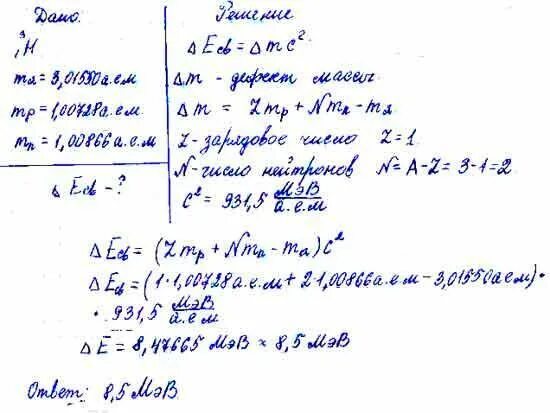 Дано:
³₁H
mя = 3,01550 а.е.м
mp = 1,00728 а.е.м.
mn = 1,00866 а.е.м
ΔEсв - ?
Решение
ΔEсв = Δmc²
Δm - дефект массы
Δm = Zmp + Nmn - mя
Z - зарядовое число Z = 1
N - число нейтронов N = A - Z = 3 - 1 = 2
c² = 931,5 МэВ/а.е.м
ΔEсв = (Zmp + Nmn - mя)c²
ΔEсв = (1·1,00728 а.е.м + 2·1,00866 а.е.м - 3,01550 а.е.м) ·
· 931,5 МэВ/а.е.м
ΔE = 8,47665 МэВ ≈ 8,5 МэВ
Ответ: 8,5 МэВ.